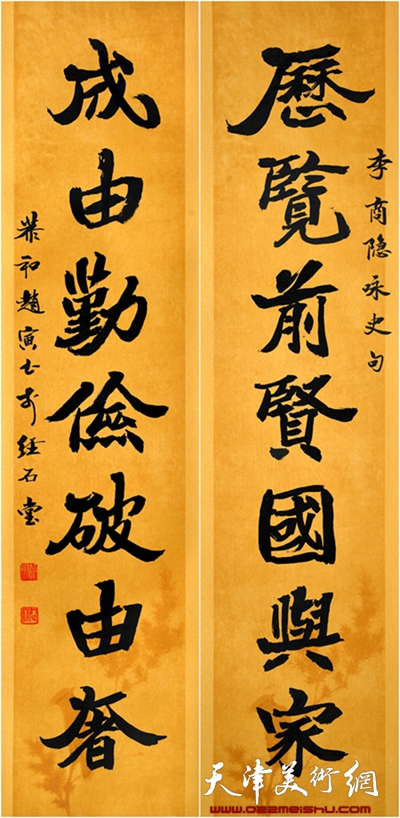 歷覽前賢國與家
李商隐咏史句
成由勤儉破由奢
恭和趙寅士於経石堂
天津美術網
www.022meishu.com